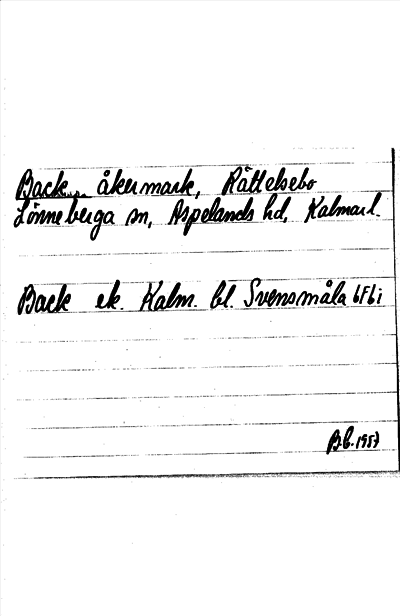 Back, åkermark, Rättelsebo
Lönneberga sn, Aspelands hd, Kalmar l.
Back ek. Kalm. bl. Svensmåla 6F6i
B.b. 1957